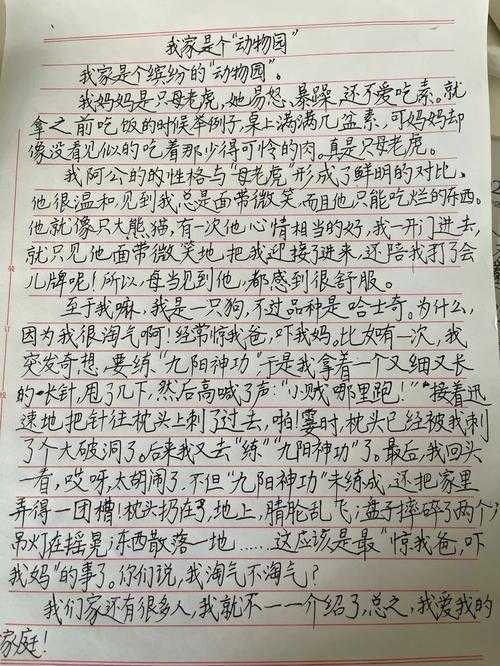 我家是个“动物园”
我家是个缤纷的“动物园”。
我妈妈是只母老虎,她易怒、暴躁,还不爱吃素。就
拿之前吃饭的时候举例子,桌上满满几盆素,可妈妈却
像没看见似的吃着那少得可怜的肉。真是只母老虎。
我阿公的的性格与“母老虎”形成了鲜明的对比。
他很温和,见到我总是面带微笑,而且他只能吃烂的东西。
他就像只大熊猫,有一次他心情相当的好,我一开门进去,
就只见他面带微笑地,把我迎接了进来,还陪我打了会
儿牌呢!所以,每当见到他,都感到很舒服。
至于我嘛,我是一只狗,不过品种是哈士奇。为什么,
因为我很淘气啊!经常惊我爸,吓我妈。比如有一次,我
突发奇想,要练“九阳神功”于是我拿着一个又细又长
的长针,甩了几下,然后高喊了声:“小贼哪里跑!”接着迅
速地把针往枕头上刺了过去,啪!霎时,枕头已经被我刺
了个大破洞了。后来我又去“练”“九阳神功”了。最后,我回头
一看,哎呀,太胡闹了,不但“九阳神功”未练成,还把家里
弄得一团糟!枕头扔在了,地上,睛轮乱飞;盘子摔碎了两个;
吊灯在摇晃;东西散落一地……这应该是最“惊我爸,吓
我妈”的事了。你们说,我淘气不淘气?
我们家还有很多人,我就不一一介绍了,总之,我爱我的
家庭!